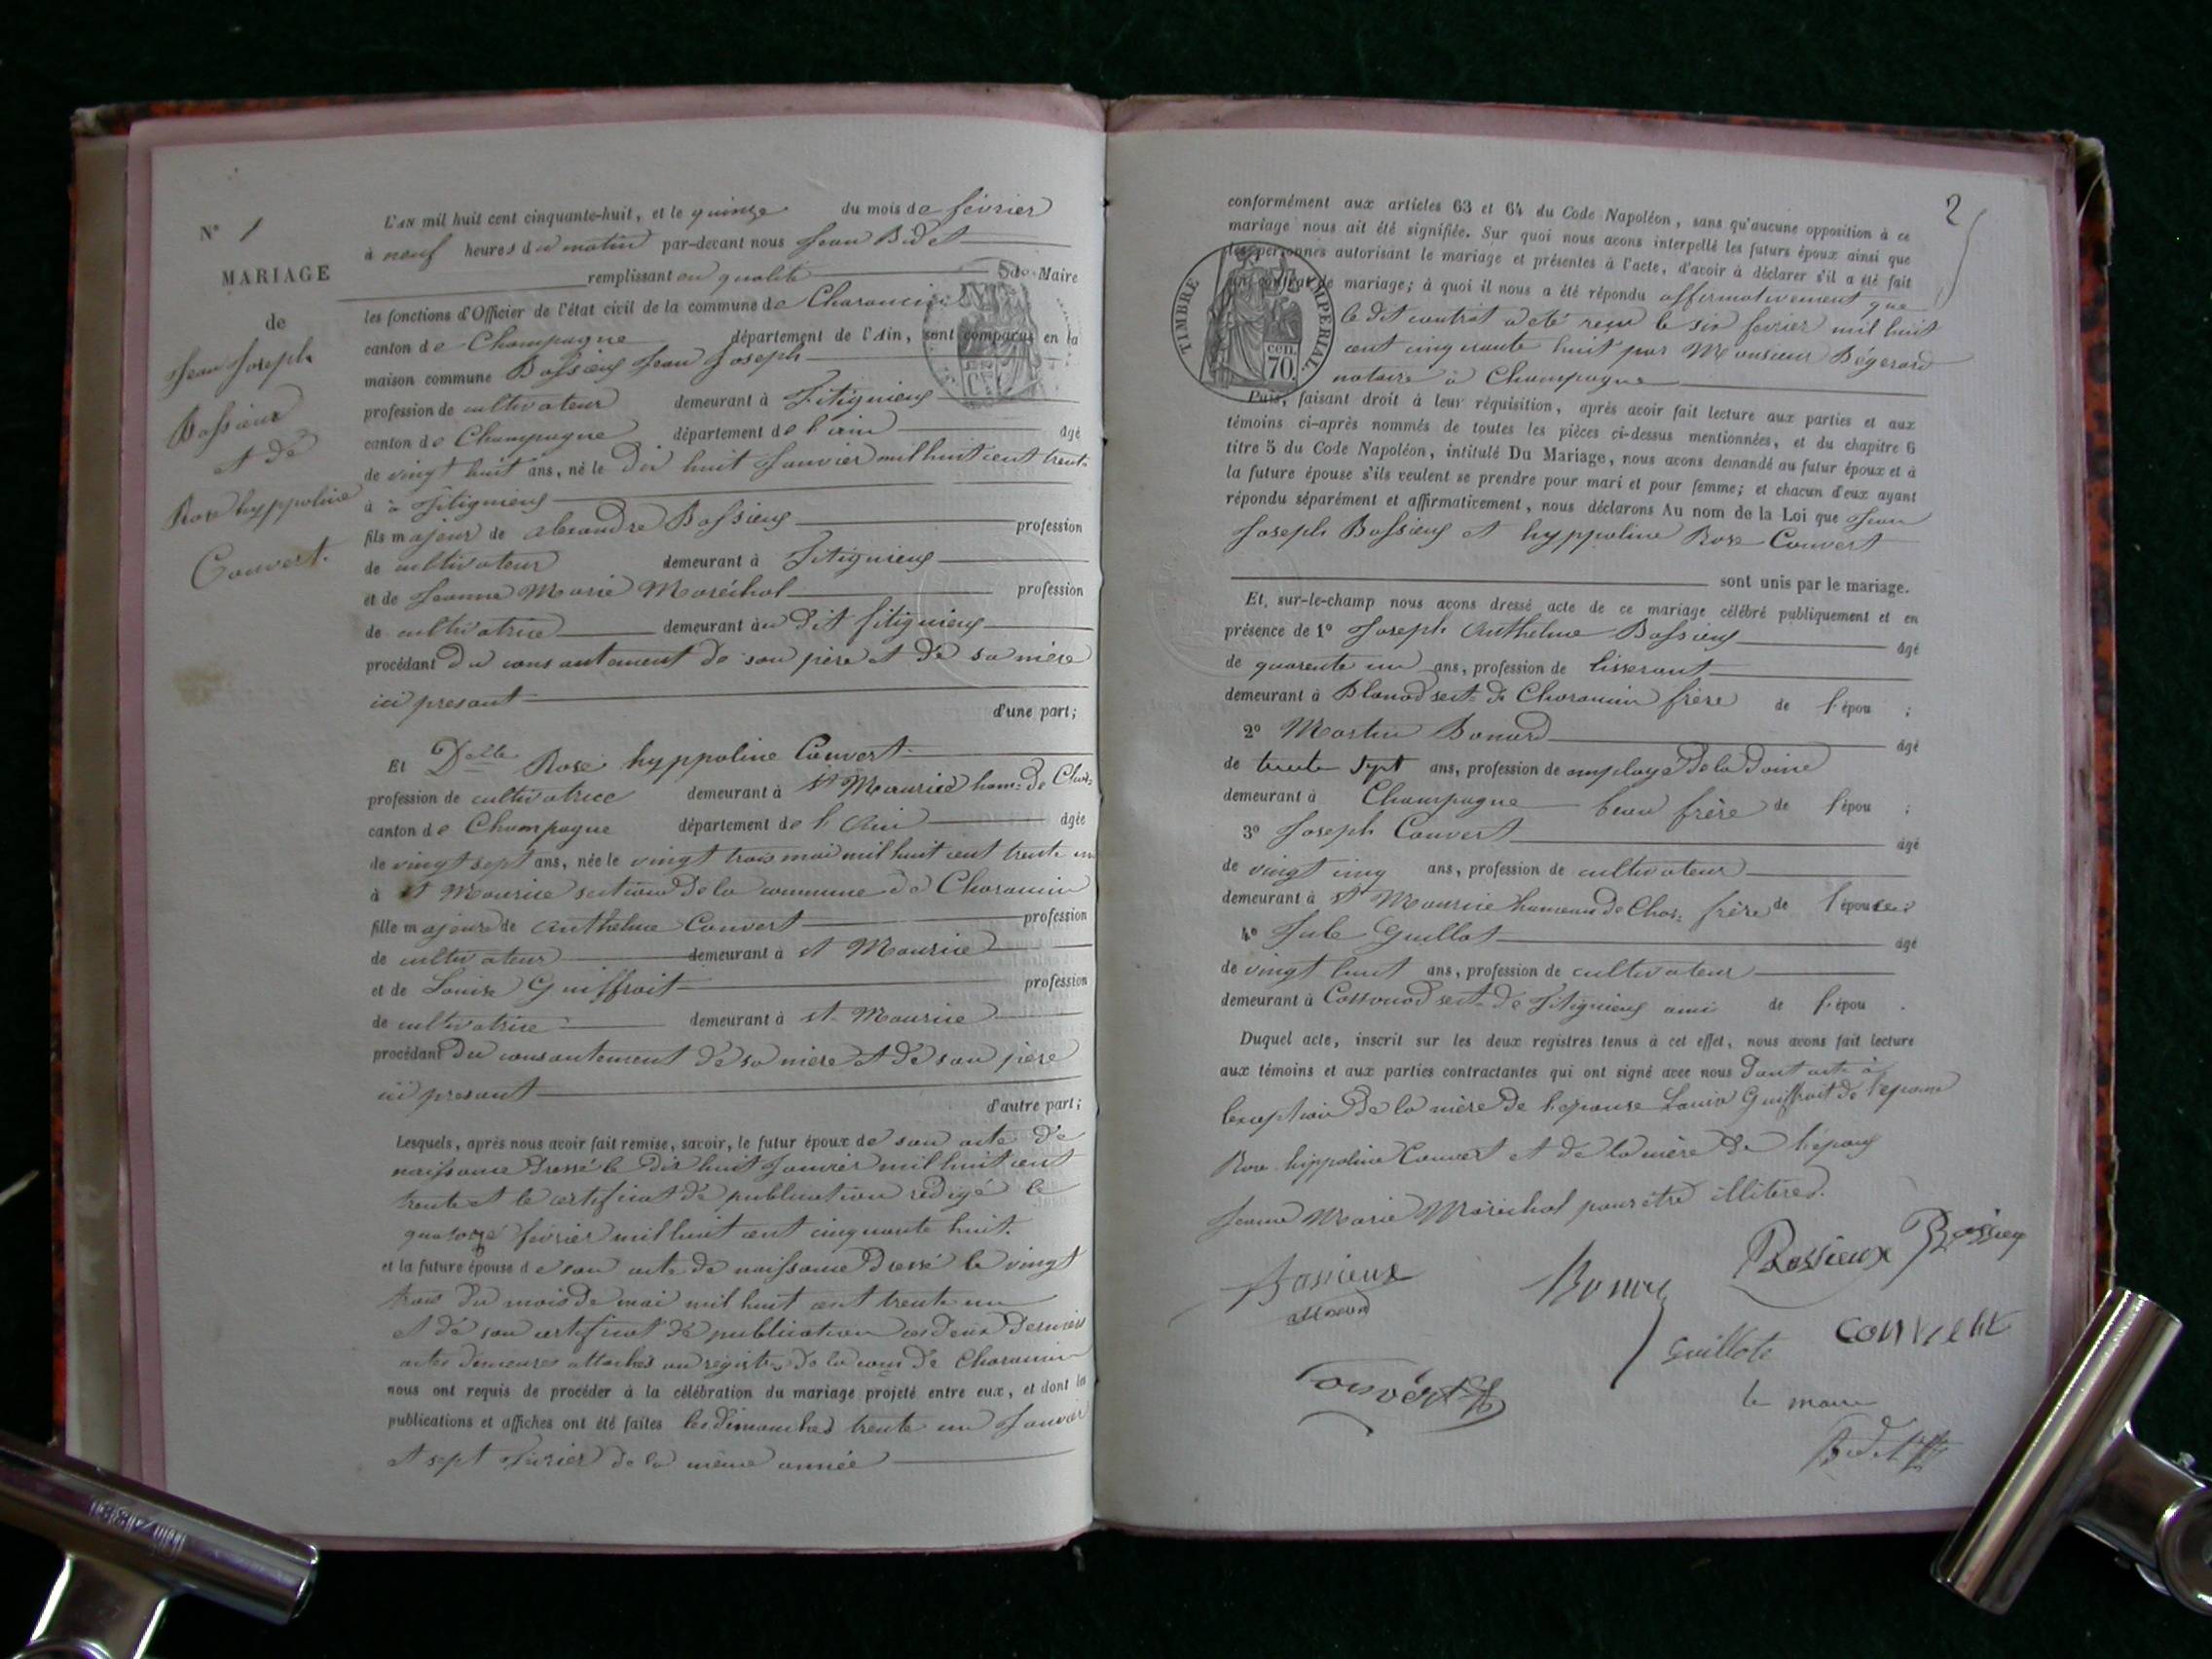 N° 1
MARIAGE
de
Jean Joseph
Bossieux
et de
Rose hyppoline
Couvert.
L'AN mil huit cent cinquante-huit, et le quinze du mois de février
à neuf heures du matin par-devant nous Jean Bidet
remplissant en qualité de Maire
les fonctions d'Officier de l'état civil de la commune de Charancin
canton de Champagne département de l'Ain, sont comparus en la
maison commune Bossieux Jean Joseph
profession de cultivateur demeurant à Fitignieux
canton de Champagne département de l'ain âgé
de vingt huit ans, né le dix huit Janvier mil huit cent trente
à à Fitignieux
fils majeur de alexandre Bossieux profession
de cultivateur demeurant à Fitignieux
et de Jeanne Marie Maréchal profession
de cultivatrice demeurant au dit fitignieux
procédant du consantement de son père et de sa mère
ici presant
d'une part;
Et Delle Rose hyppoline Couvert
profession de cultivatrice demeurant à st Maurice ham: de Char:
canton de Champagne département de l'Ain âgée
de vingt sept ans, née le vingt trois mai mil huit cent trente un
à st Maurice section de la commune de Charancin
fille majeure de Anthelme Couvert profession
de cultivateur demeurant à st Maurice
et de Louise Guiffrait profession
de cultivatrice demeurant à st Maurice
procédant du consantement de sa mère et de son père
ici presant
d'autre part;
Lesquels, après nous avoir fait remise, savoir, le futur époux de son acte de
naissance dressé le dix huit Janvier mil huit cent
trente et le certificat de publication rédigé le
quatorze février mil huit cent cinquante huit.
et la future épouse de son acte de naissance dressé le vingt
trois du mois de mai mil huit cent trente un
et de son certificat de publication ces deux derniers
actes demeurés attachés au régistre de la com de Charancin
nous ont requis de procéder à la célébration du mariage projeté entre eux, et dont les
publications et affiches ont été faites les dimanches trente un Janvier
et sept février de la même année
2
conformément aux articles 63 et 64 du Code Napoléon, sans qu'aucune opposition à ce
mariage nous ait été signifiée. Sur quoi nous avons interpellé les futurs époux ainsi que
les personnes autorisant le mariage et présentes à l'acte, d'avoir à déclarer s'il a été fait
un contrat de mariage; à quoi il nous a été répondu affirmativement que
TIMBRE IMPERIAL.
cen.
70.
le dit contrat a été reçu le six février mil huit
cent cinquante huit par Monsieur Bégerard
notaire à Champagne
Puis, faisant droit à leur réquisition, après avoir fait lecture aux parties et aux
témoins ci-après nommés de toutes les pièces ci-dessus mentionnées, et du chapitre 6
titre 5 du Code Napoléon, intitulé Du Mariage, nous avons demandé au futur époux et à
la future épouse s'ils veulent se prendre pour mari et pour femme; et chacun d'eux ayant
répondu séparément et affirmativement, nous déclarons Au nom de la Loi que Jean
Joseph Bossieux et hyppoline Rose Couvert
sont unis par le mariage.
Et, sur-le-champ nous avons dressé acte de ce mariage célébré publiquement et en
présence de 1° Joseph Anthelme Bossieux âgé
de quarente un ans, profession de tisserant
demeurant à sect. de Charancin frère de l'épou ;
2° Martin Bonard âgé
de trente sept ans, profession de employé de la
demeurant à Champagne beau frère de l'épou ;
3° Joseph Couvert âgé
de vingt cinq ans, profession de cultivateur
demeurant à st Maurice hameau de Char: frère de l'épouse;
4° Jule Guillot âgé
de vingt huit ans, profession de cultivateur
demeurant à sect. de Fitignieux ami de l'épou .
Duquel acte, inscrit sur les deux registres tenus à cet effet, nous avons fait lecture
aux témoins et aux parties contractantes qui ont signé avec nous dont acte à
l'exception de la mère de l'épouse Louise Guiffrait de l'épouse
Rose hippoline Couvert et de la mère de l'époux
Jeanne Marie Maréchal pour être illitered.
Bossieux
Bossieux
Bossieux
Guillote
Couvert
Couvert
le maire
Bidet